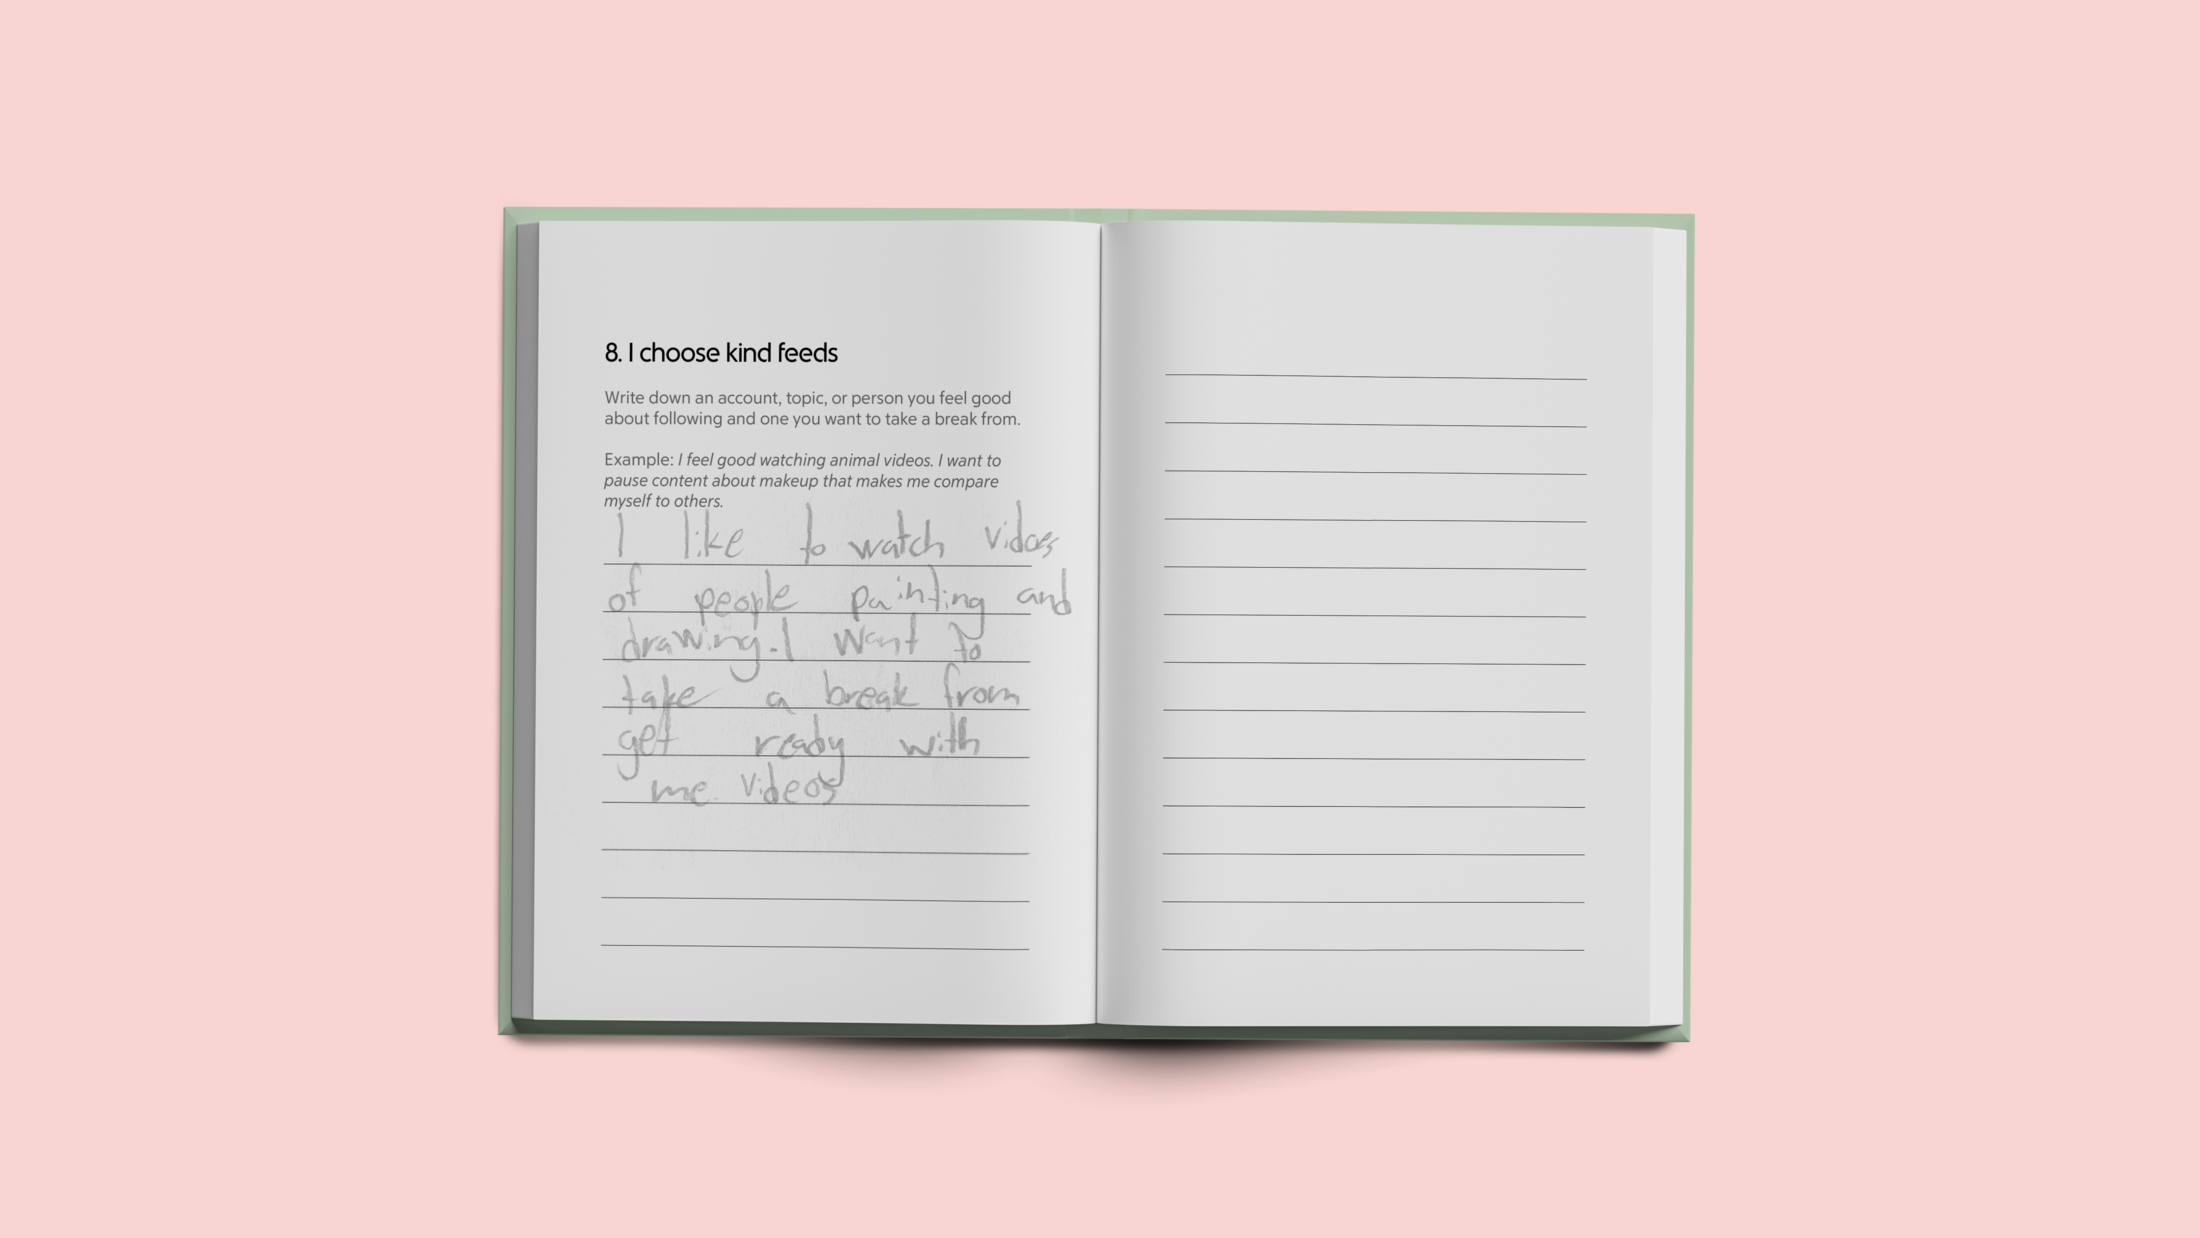 8. I choose kind feeds
Write down an account, topic, or person you feel good
about following and one you want to take a break from.
Example: I feel good watching animal videos. I want to
pause content about makeup that makes me compare
myself to others.
I like to watch vidoes
of people painting and
drawing. I want to
take a break from
get ready with
me videos